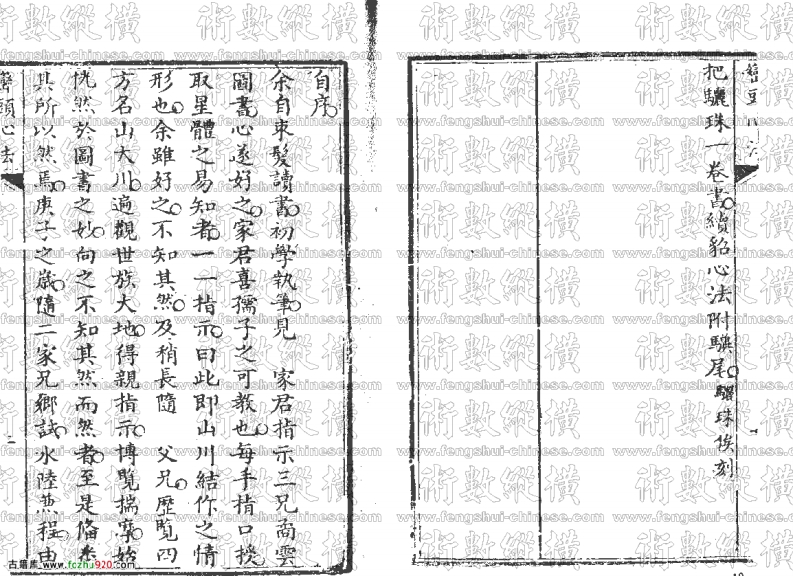 把驪珠一卷書續貂心法附驥尾驪珠俟刻
自序
余自束髮讀書初學執筆見 家君指示三兄啇雲
圖書心遂好之家君喜孺子之可教也每手指口授
取星體之易知者一一指示曰此即山川結作之情
形也余雖好之不知其然及稍長隨 父兄歷覽四
方名山大川遍觀世族大地得親指示博覽揣摩始
恍然於圖書之妙向之不知其然而然者至是俻悉
其所以然焉庚子之歲隨二家兄鄉試水陸兼程由
巒頭心法
一
術數縱橫
www.fengshui-chinese.com
古籍库 www.fczhu920.com